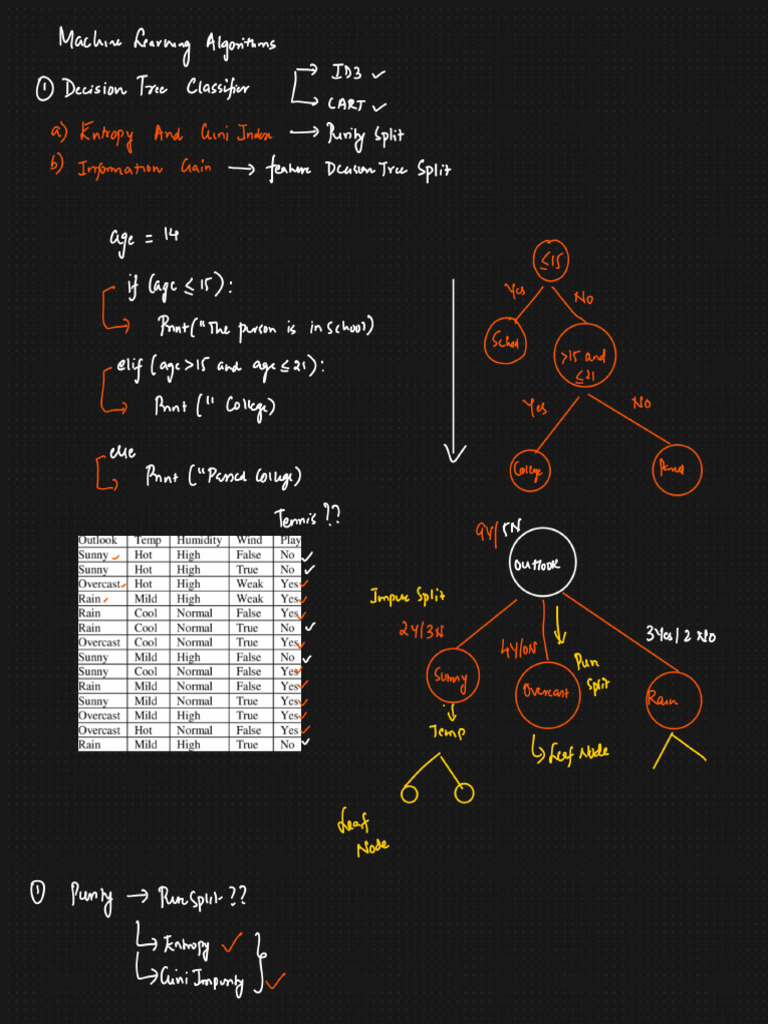 Machine Learning Algorithms
① Decision Tree Classifier
→ ID3 ✓
→ CART ✓
a) Entropy And Gini Index → Purity Split
b) Information Gain → feature Decision Tree Split
age = 14
if (age ≤ 15):
Print("The person is in school)
elif (age > 15 and age ≤ 21):
Print (" College)
else
Print ("Passed College)
≤15
Yes
No
School
>15 and
≤21
Yes
No
College
Passed
Tennis ??
Outlook Temp Humidity Wind Play
Sunny Hot High False No
Sunny Hot High True No
Overcast Hot High Weak Yes
Rain Mild High Weak Yes
Rain Cool Normal False Yes
Rain Cool Normal True No
Overcast Cool Normal True Yes
Sunny Mild High False No
Sunny Cool Normal False Yes
Rain Mild Normal False Yes
Sunny Mild Normal True Yes
Overcast Mild High True Yes
Overcast Hot Normal False Yes
Rain Mild High True No
9Y/5N
Outlook
Impure Split
2Y/3N
4Y/0N
3Yes/2 No
Sunny
Overcast
Rain
Pure
Split
Temp
Leaf Node
Leaf
Node
① Purity → Pure Split ??
→ Entropy ✓
→ Gini Impurity ✓